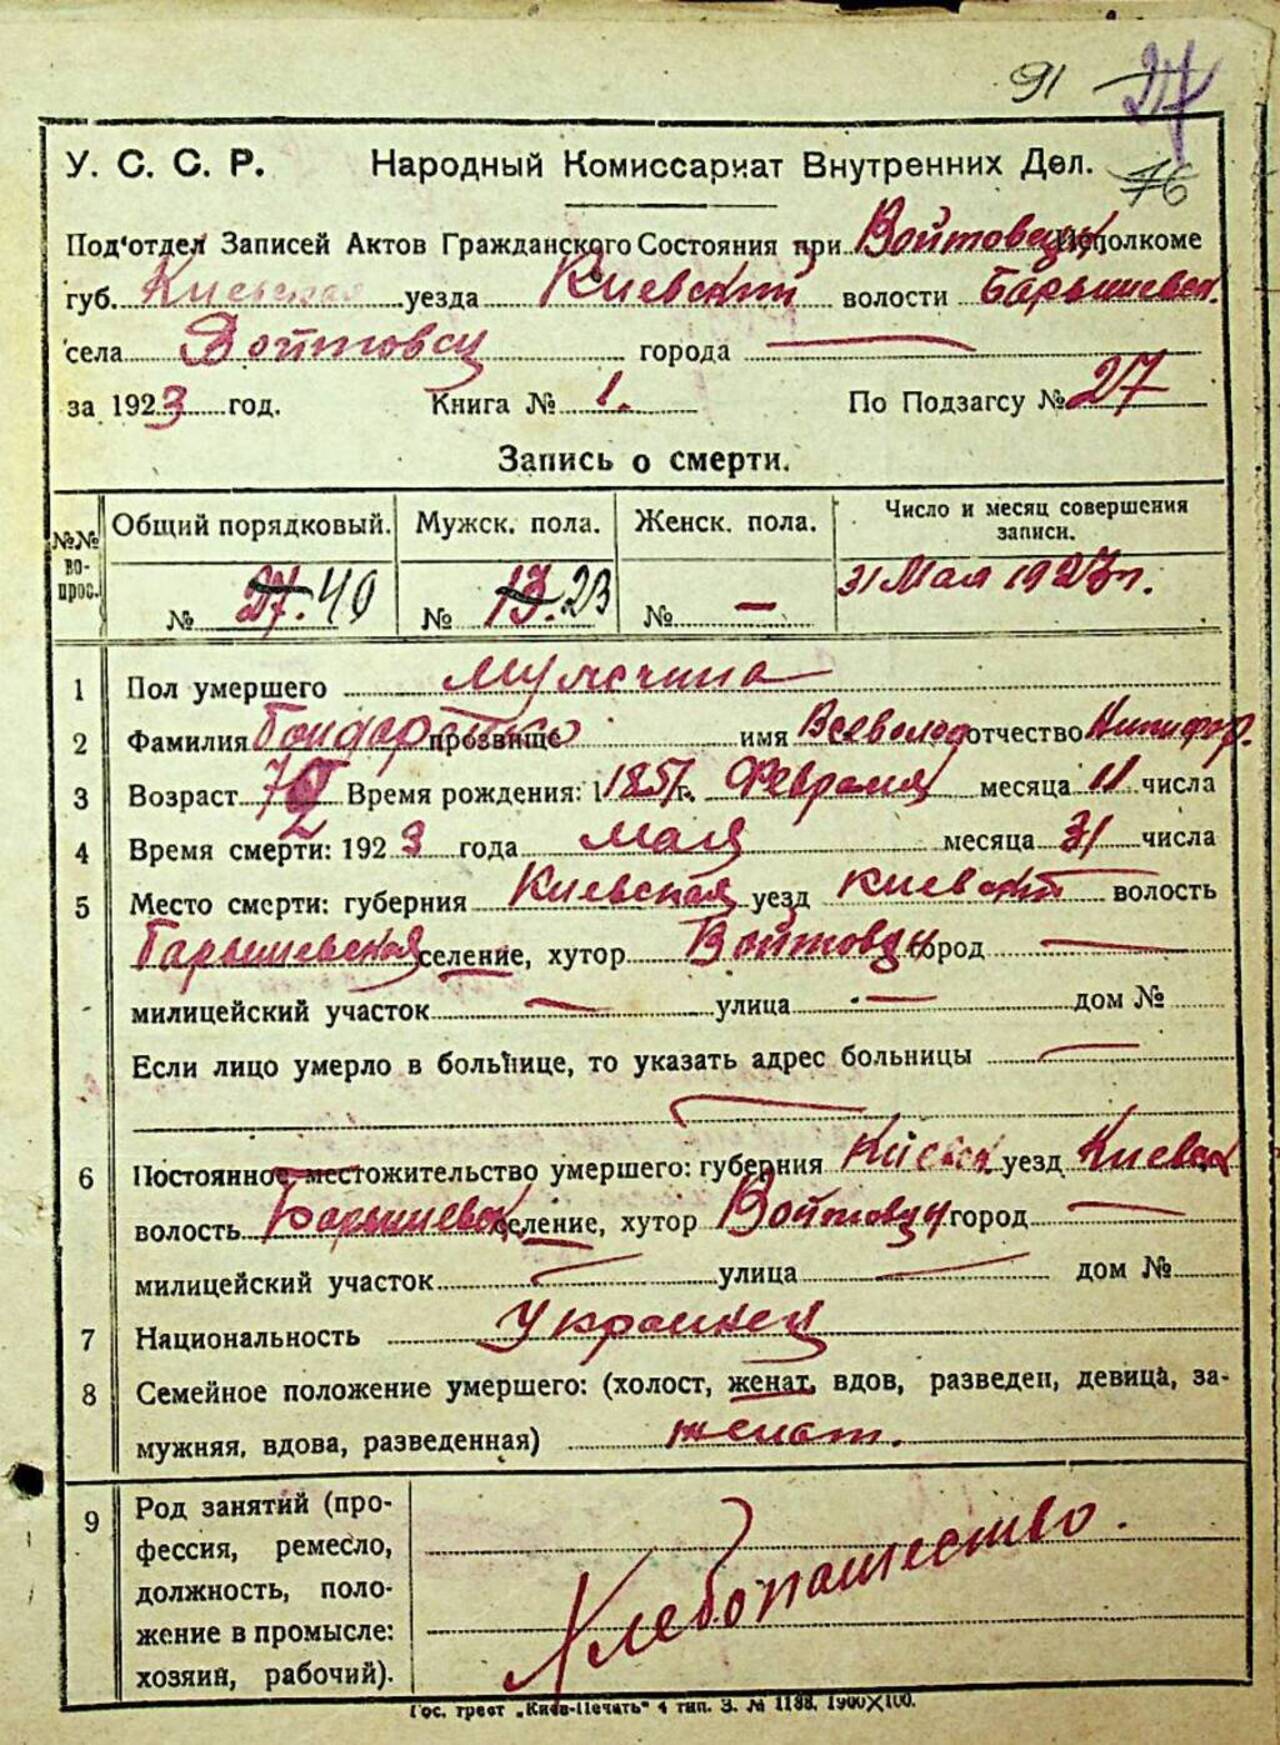 91 27
У. С. С. Р. Народный Комиссариат Внутренних Дел. 76
Под'отдел Записей Актов Гражданского Состояния при Войтовецк Исполкоме
губ. Киевская уезда Киевский волости Барышевск.
села Войтовцы города —
за 1923 год. Книга № 1. По Подзагсу № 27
Запись о смерти.
№№ вопрос. Общий порядковый. Мужск. пола. Женск. пола. Число и месяц совершения записи.
№ 27. 40 № 13. 23 № — 31 Мая 1923 г.
1 Пол умершего мужчина
2 Фамилия Бондаренко прозвище имя Всеволод отчество Никифор.
3 Возраст 72 Время рождения: 1851 г. Февраля месяца 11 числа
4 Время смерти: 1923 года мая месяца 31 числа
5 Место смерти: губерния Киевская уезд Киевский волость
Барышевская селение, хутор Войтовцы город —
милицейский участок — улица — дом №
Если лицо умерло в больнице, то указать адрес больницы —
—
6 Постоянное местожительство умершего: губерния Киевск уезд Киевск
волость Барышевск селение, хутор Войтовцы город —
милицейский участок — улица — дом №
7 Национальность Украинец
8 Семейное положение умершего: (холост, женат, вдов, разведен, девица, за-
мужняя, вдова, разведенная) женат.
9 Род занятий (про-
фессия, ремесло,
должность, поло-
жение в промысле:
хозяин, рабочий).
Хлебопашество.
Гос. трест „Киев-Печать" 4 тип. З. № 1188. 1900×100.